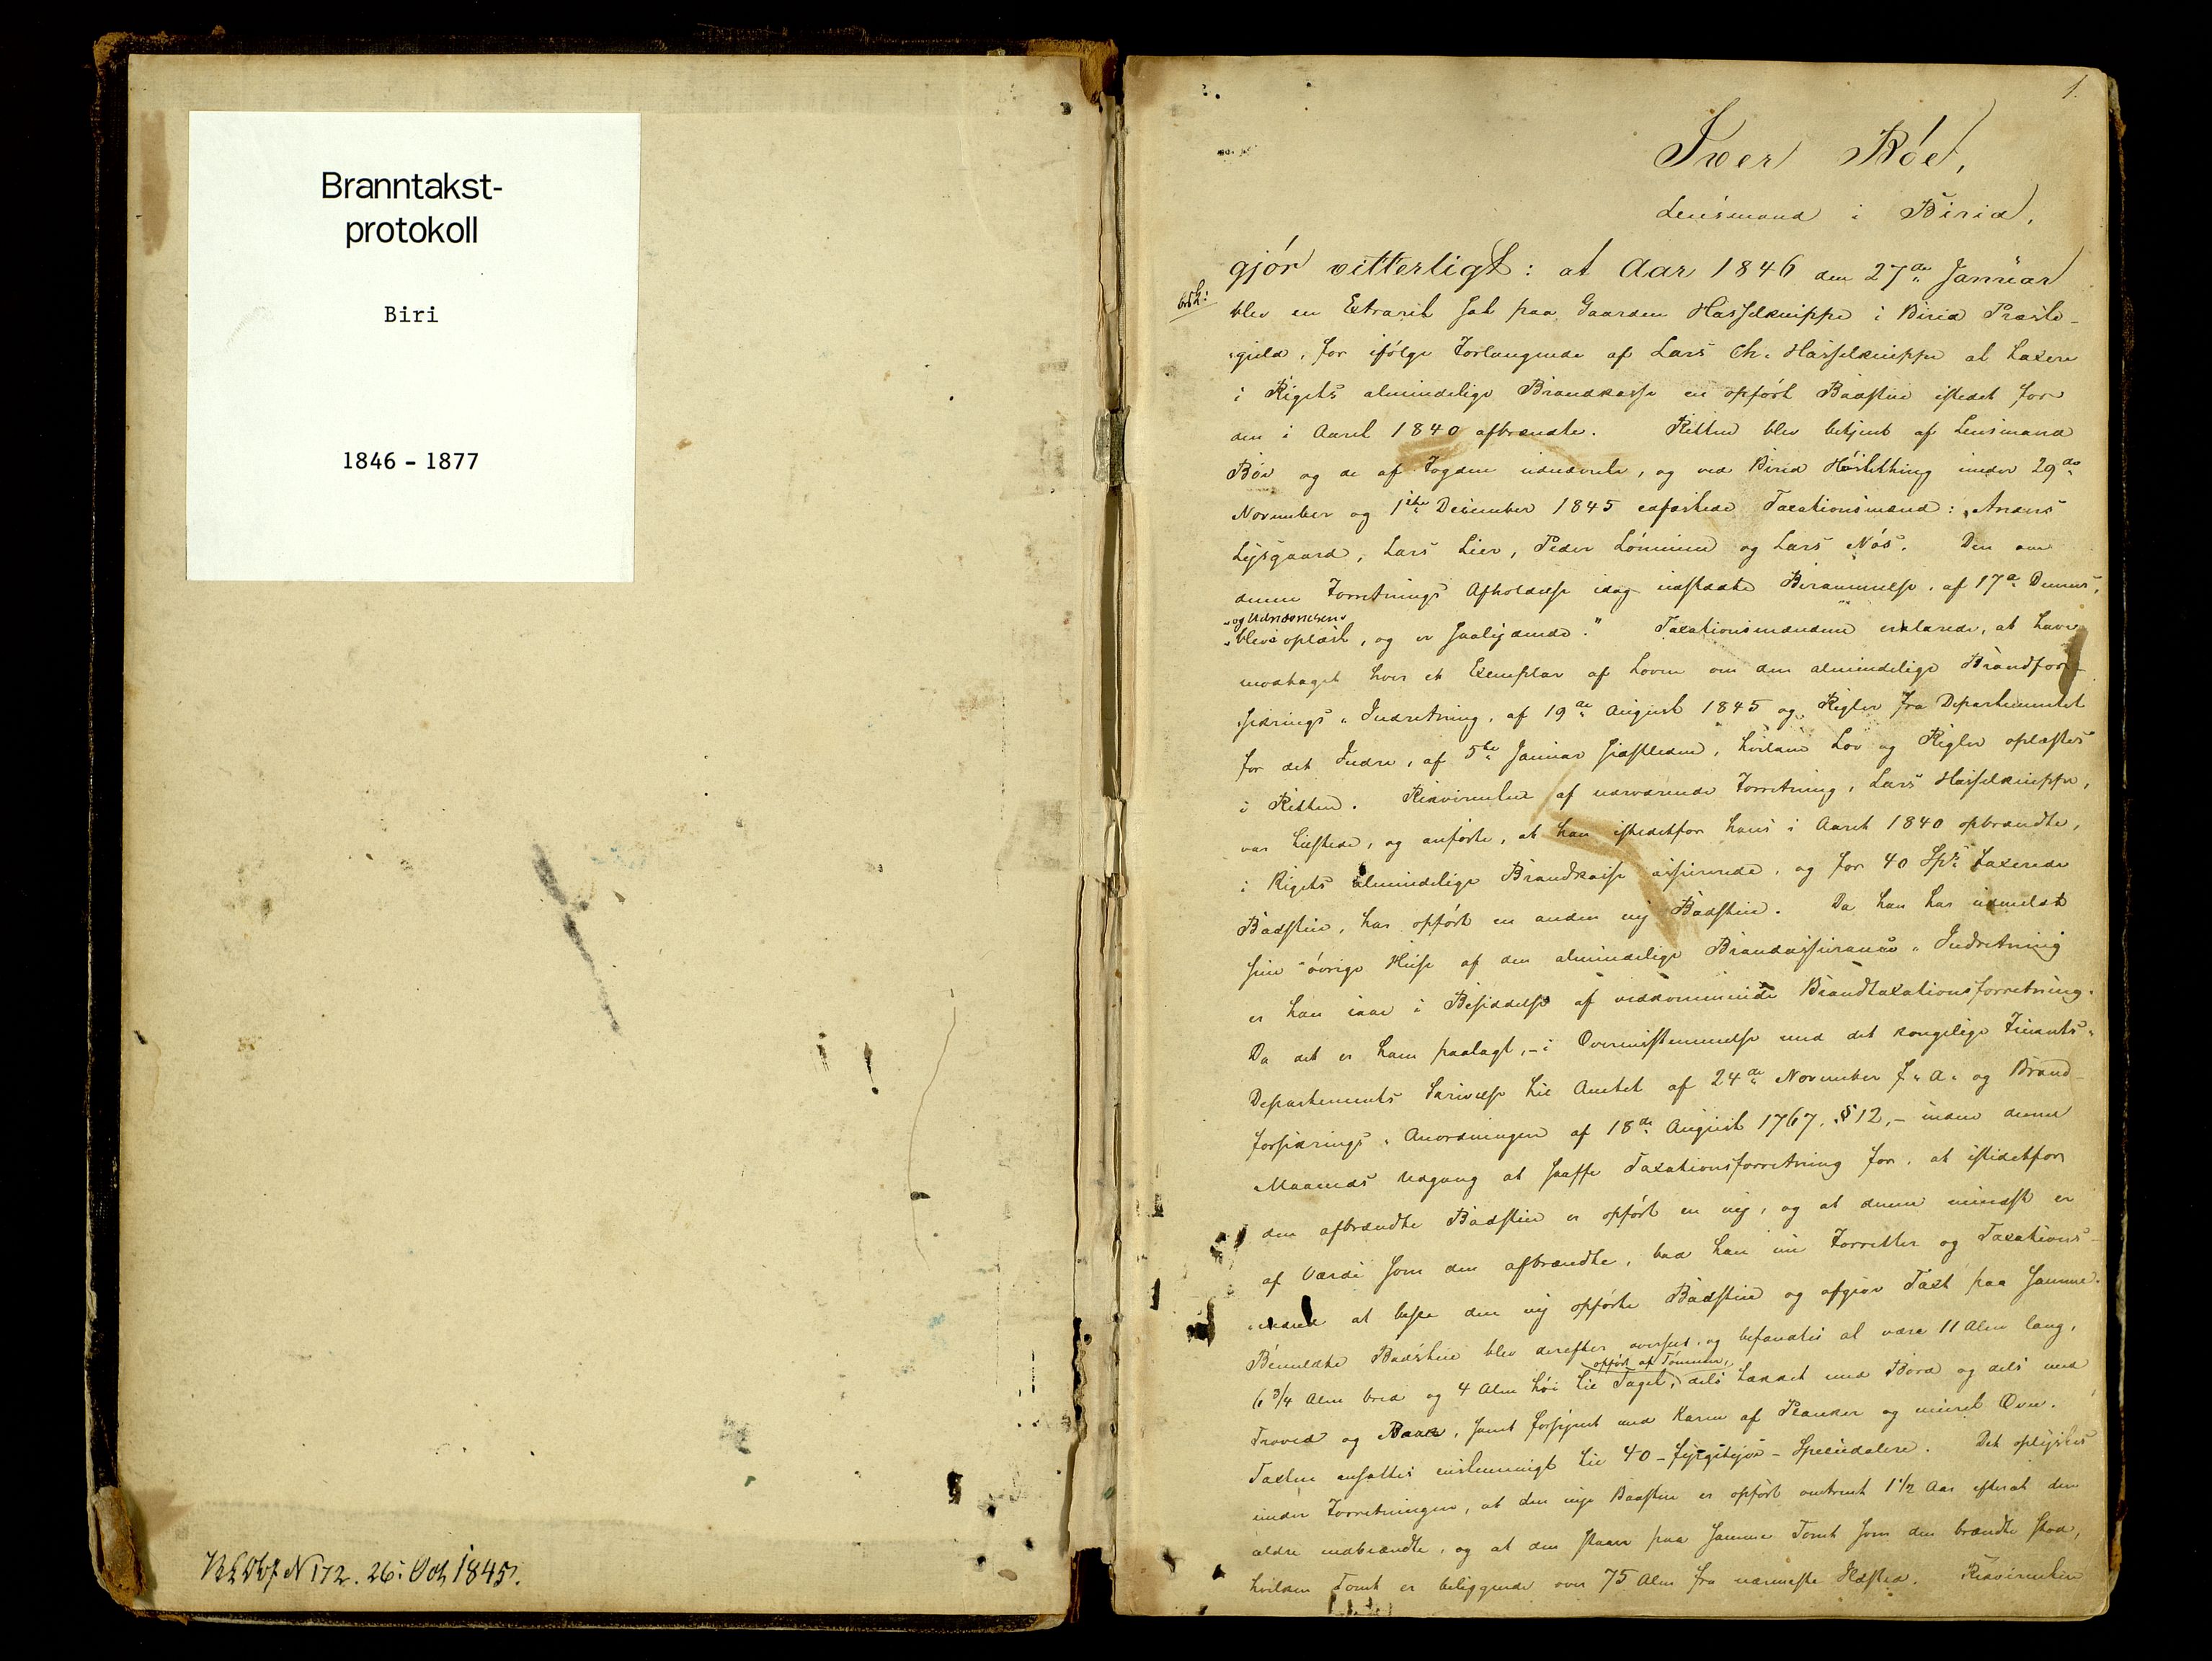 Branntakst-
protokoll
Biri
1846 - 1877
N 172. 26: Oct 1845.
1.
Iver Böe,
Lensmand i Birid,
gjör vitterligt: at Aar 1846 den 27de Januar
blev en Extraret sat paa Gaarden Hasselknippe i Birid Præste-
gield, for ifölge Forlangende af Lars Ch. Hasselknippe at taxere
i Rigets almindelige Brandkasse en opfört Badstue istedet for
den i Aaret 1840 afbrændte. Retten blev betjent af Lensmand
Böe og de af Fogden udnævnte, og ved Birid Hösttthing under 29de
November og 1ste December 1845 edfæstede Taxationsmænd: Anders
Lysgaard, Lars Lier, Peder Lönnum og Lars Nös. Den om
denne Forretnings Afholdelse idag udstædte Berammelse, af 17de Dennes,
og Udnævnelsen
blev oplæst, og er saalydende." Taxationsmændene erklærede, at have
modtaget hver et Exemplar af Loven om den almindelige Brandfor-
sikrings-Indretning, af 19de August 1845 og Regler fra Departementet
for det Indre, af 5te Januar sidstleden, hvilken Lov og Regler oplæstes
i Retten. Rekvirenten af nærværende Forretning, Lars Hasselknippe,
var tilstede, og anförte, at han istedetfor hans i Aaret 1840 opbrændte,
i Rigets almindelige Brandkasse assurerede, og for 40 Spd. taxerede
Badstue, har opfört en anden ny Badstue. Da han har udmeldt
sine övrige Huse af den almindelige Brandassurance-Indretning
er han ikke i Besiddelse af vedkommende Brandtaxationsforretning.
Da det er ham paalagt, - i Overensstemmelse med det kongelige Finants-
Departements Skrivelse til Amtet af 24de November f. A. og Brand-
forsikrings-Anordningen af 18de August 1767, § 12, - inden denne
Maaneds Udgang at skaffe Taxationsforretning for, at istedetfor
den afbrændte Badstue er opfört en ny, og at denne mindst er
af Værdi som den afbrændte, bad han nu Forretter og Taxations-
mænd at bese den ny opförte Badstue og afgive Taxt paa Samme.
Bemeldte Badstue blev derefter overseet, og befandtes at være 11 Alen lang,
opfört af Tömmer,
6 3/4 Alen bred og 4 Alen höi til Taget, dels tækket med Bord og dels med
Troved og Baker, samt forsynet med Karm af Planker og muret Ovn.
Taxten ansattes enstemmigt til 40 - fyrgetyve - Speciedalere. Det oplystes
under Forretningen, at den nye Badstue er opfört omtrent 1 1/2 Aar efterat den
ældre nedbrændte, og at den staaer paa samme Tomt som den brændte stod,
hvilken Tomt er beliggende over 75 Alen fra nærmeste Ildsted. Rekvirenten